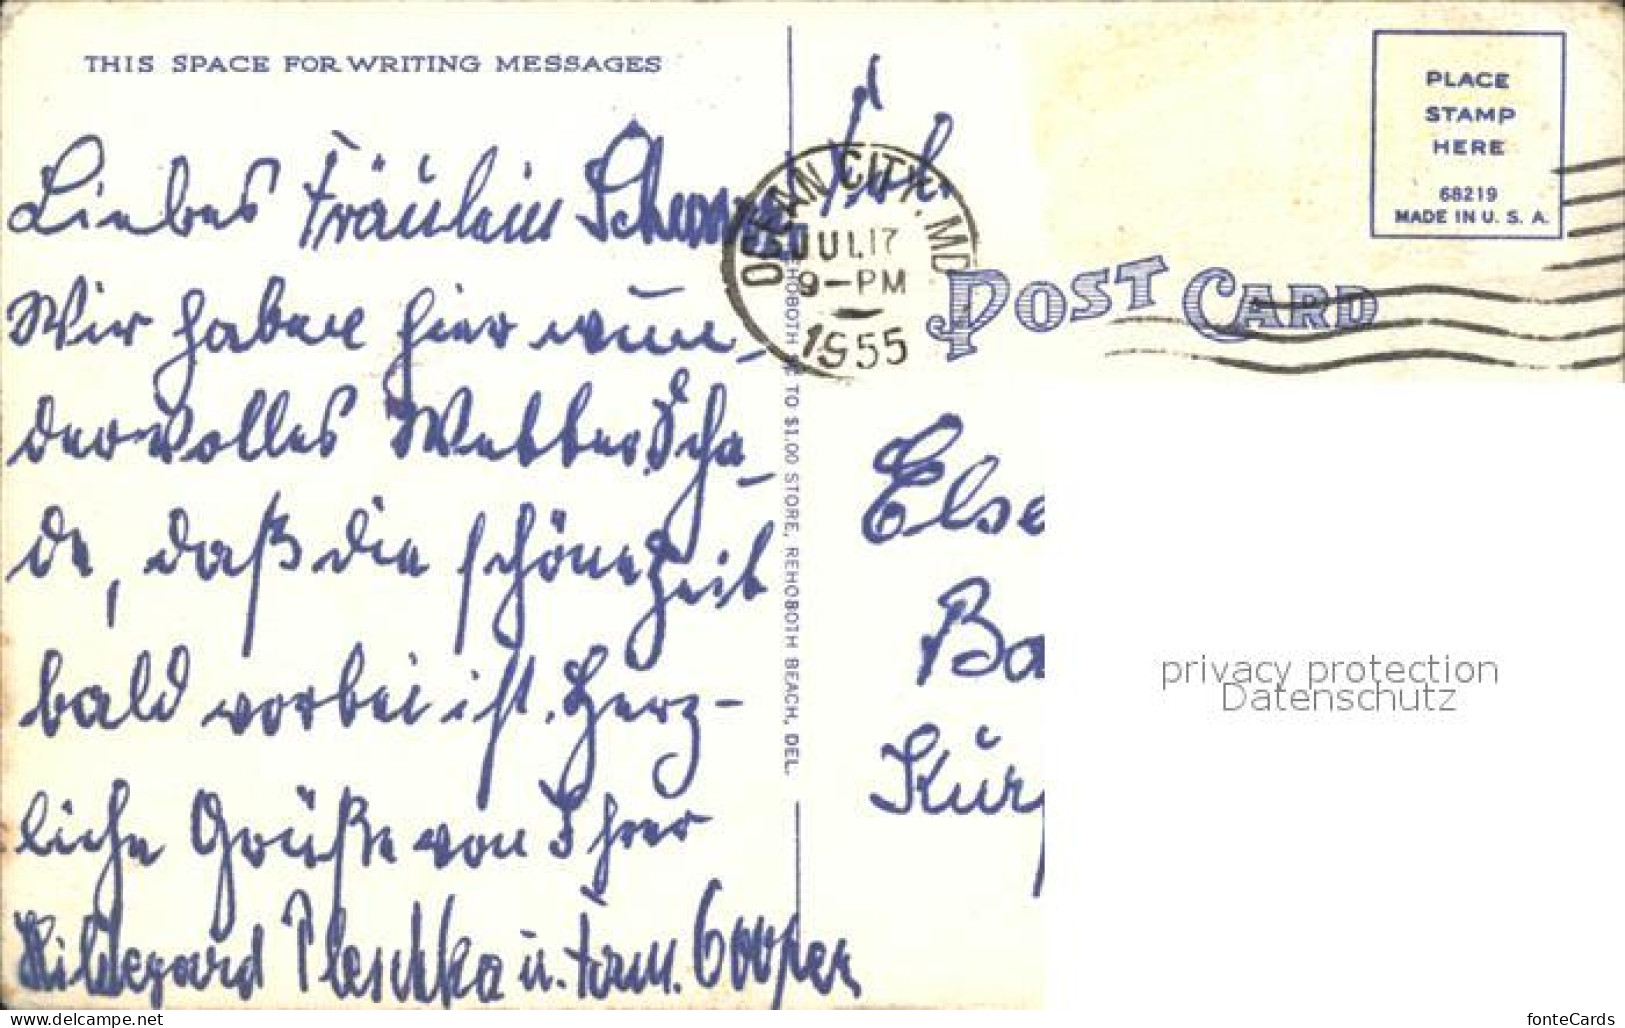 THIS SPACE FOR WRITING MESSAGES
Liebes Fräulein
Wir haben hier wun-
dervolles Wetter. Scha-
de, daß die schöne Zeit
bald vorbei ist. Herz-
liche Grüße von Ihrer
Hildegard Pleschka u. Fam. Cooper
REHOBOTH 5¢ TO $1.00 STORE, REHOBOTH BEACH, DEL.
OCEAN CITY, MD
JUL 17
9-PM
1955
POST CARD
PLACE
STAMP
HERE
68219
MADE IN U. S. A.
Else
Ba
Kür
privacy protection
Datenschutz
www.delcampe.net
fonteCards